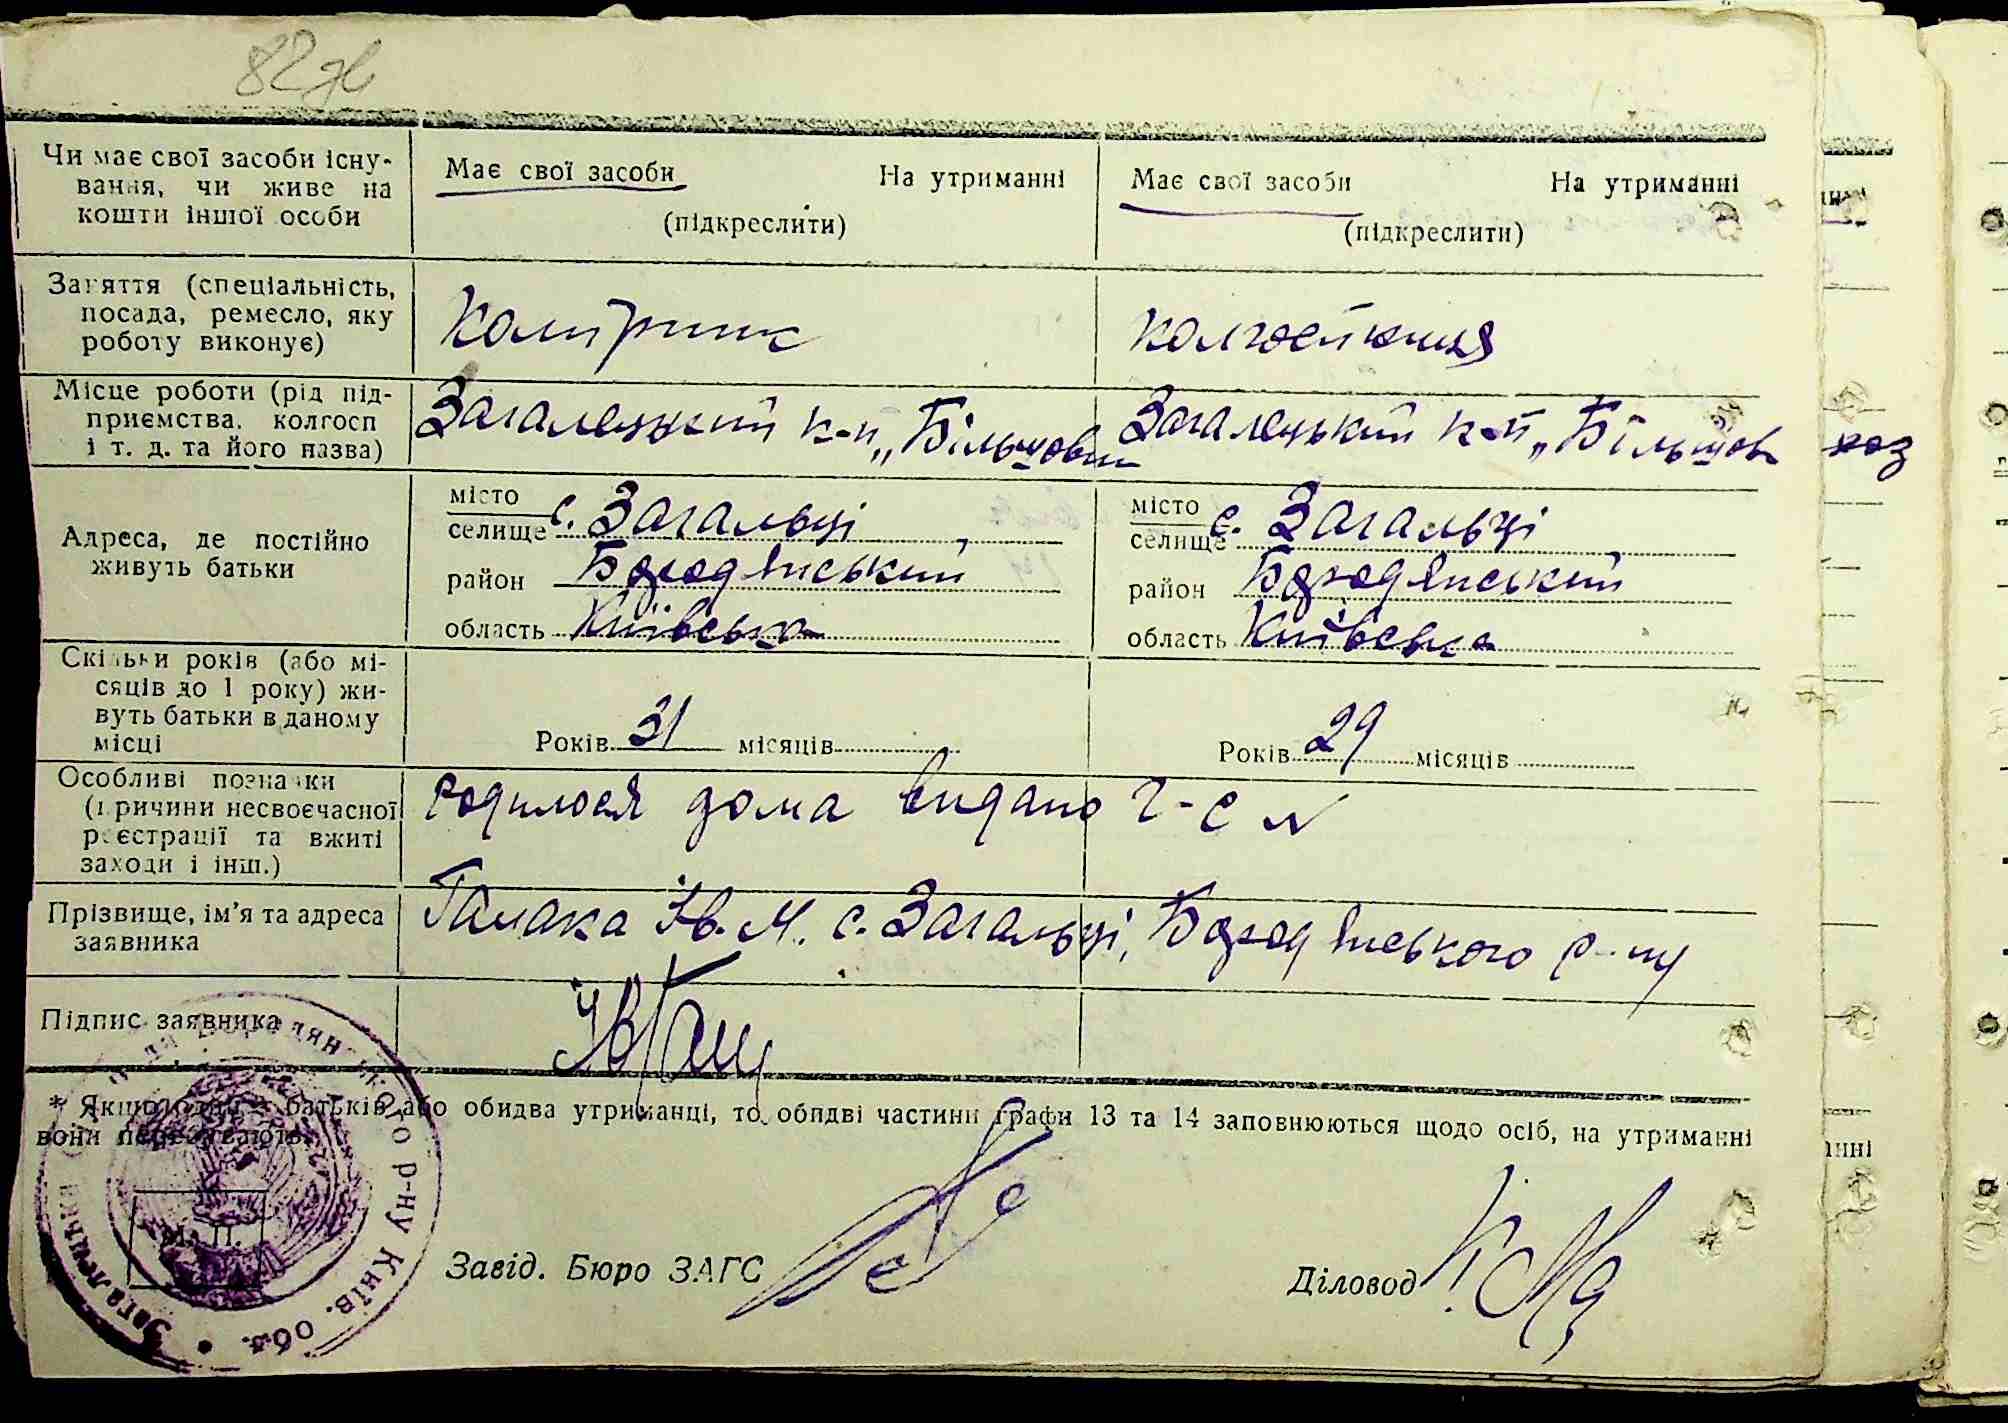 82зв
Чи має свої засоби існу-
вання, чи живе на
кошти іншої особи
Має свої засоби На утриманні
(підкреслити)
Має свої засоби На утриманні
(підкреслити)
Заняття (спеціальність,
посада, ремесло, яку
роботу виконує)
колгоспниця
Місце роботи (рід під-
приємства, колгосп
і т. д. та його назва)
Загалецький к-п „Більшовик
Загалецький к-п „Більшов
Адреса, де постійно
живуть батьки
місто
селище с. Загальці
район Бородянський
область Київська
місто
селище с. Загальці
район Бородянський
область Київська
Скільки років (або мі-
сяців до 1 року) жи-
вуть батьки в даному
місці
Років 31 місяців
Років 29 місяців
Особливі позначки
(причини несвоєчасної
реєстрації та вжиті
заходи і інш.)
родилося дома видано
Прізвище, ім'я та адреса
заявника
Галака Ів. М. с. Загальці, Бородянського р-ну
Підпис заявника
* Якщо один з батьків або обидва утриманці, то обидві частини графи 13 та 14 заповнюються щодо осіб, на утриманні
вони перебувають.
М. П.
Завід. Бюро ЗАГС
Діловод
Бородянського р-ну Київ. обл.